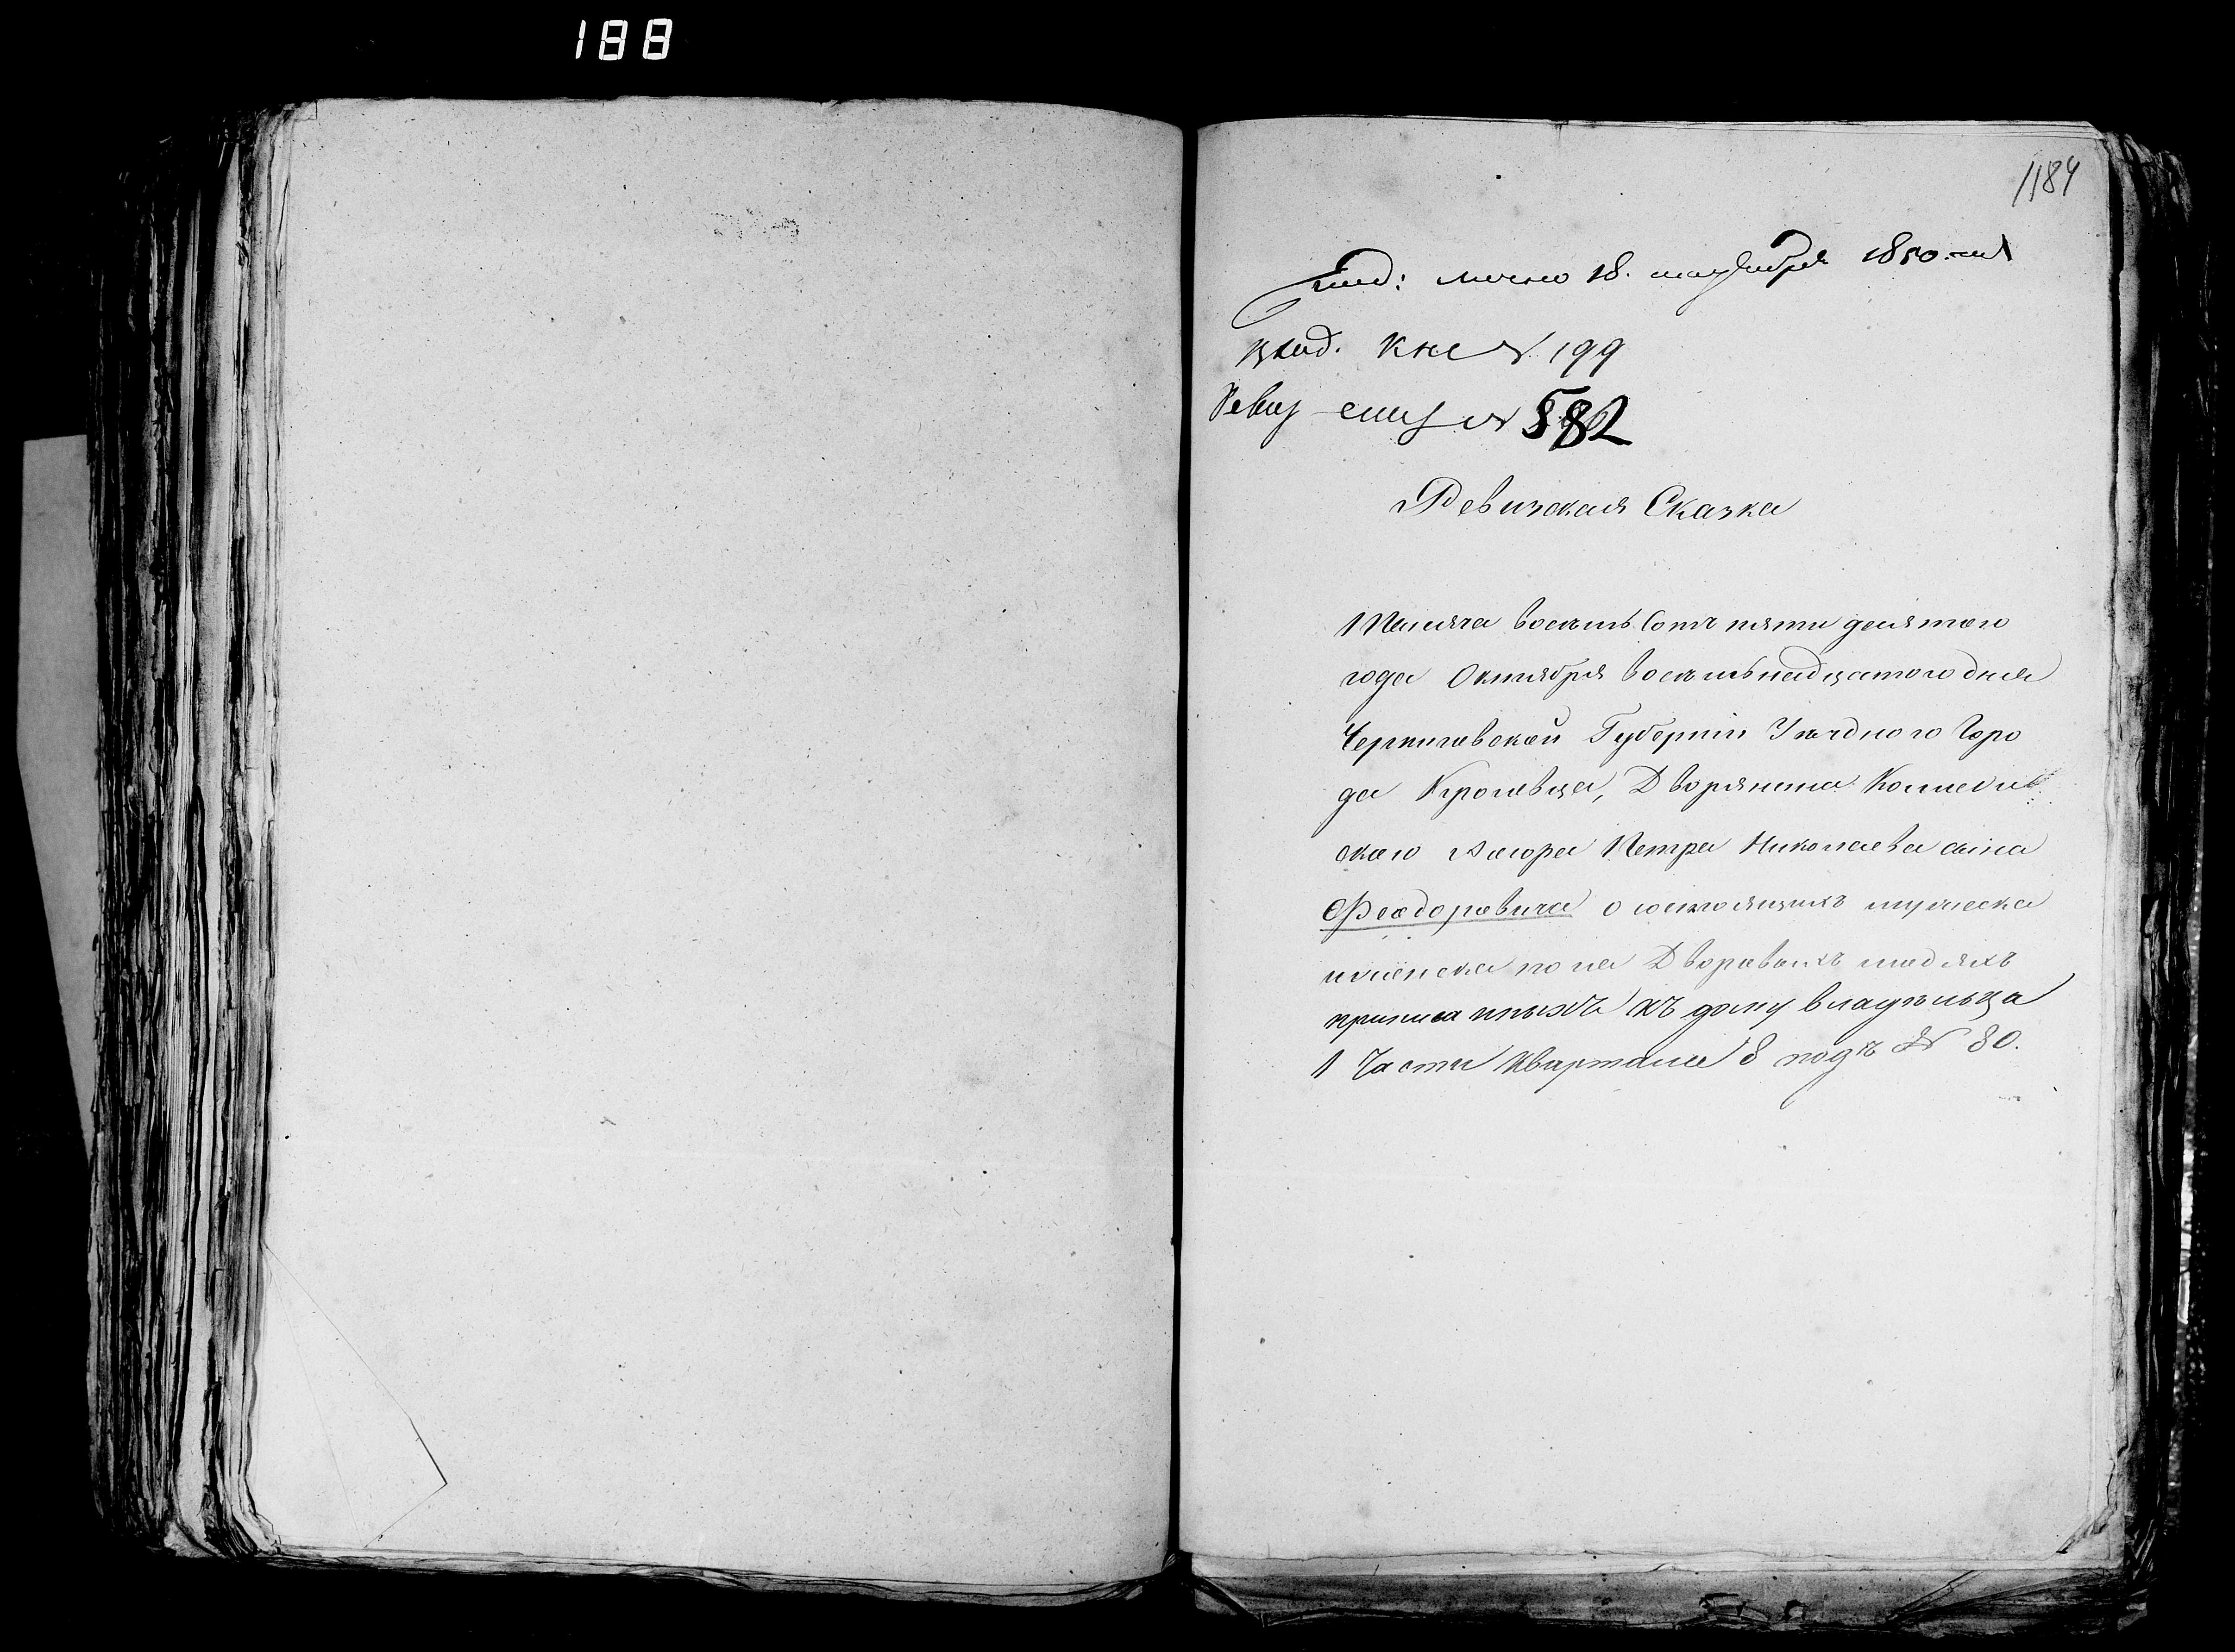 188
1184
18. 1850
вход. Кне № 199
Ревиз № 582
Ревизская Сказка
Тысяча восемь Сотъ пяти десятого
года Октября восемьнадцатого дня
Черниговской Губерніи Уѣздного Горо
да Кролевца, Дворянина Коллежс
скаго Петра Николаева сына
Феодоровича о состоящихъ мужеска
и женска пола Дворовыхъ людяхъ
приписанныхъ къ дому владѣльца
1 Части Квартала 8 подъ № 80.